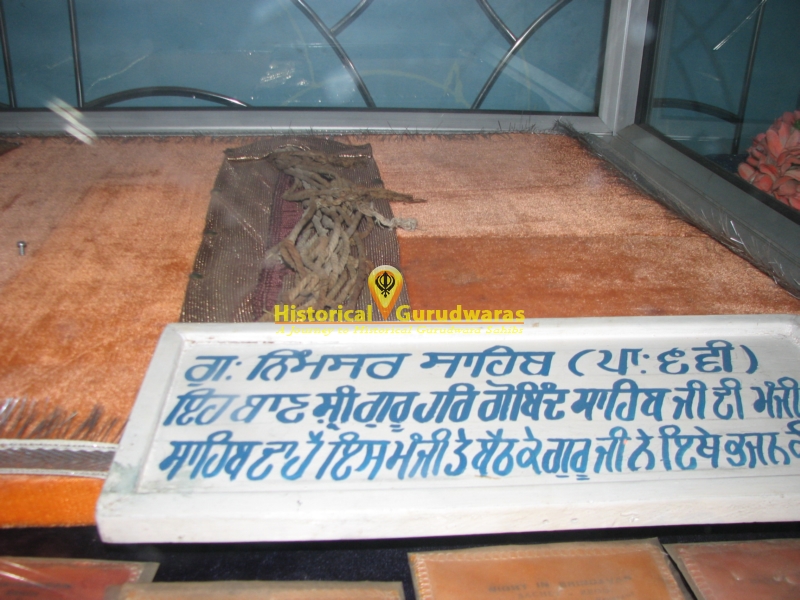 Historical Gurudwaras
A Journey to Historical Gurudwara Sahibs
ਗੁ: ਨਿੰਮਸਰ ਸਾਹਿਬ (ਪਾ: ੬ਵੀਂ)
ਇਹ ਬਾਣ ਸ਼੍ਰੀ ਗੁਰੂ ਹਰਿ ਗੋਬਿੰਦ ਸਾਹਿਬ ਜੀ ਦੀ ਮੰਜੀ
ਸਾਹਿਬ ਦਾ ਹੈ ਇਸ ਮੰਜੀ ਤੇ ਬੈਠ ਕੇ ਗੁਰੂ ਜੀ ਨੇ ਇਥੇ ਭਜਨ